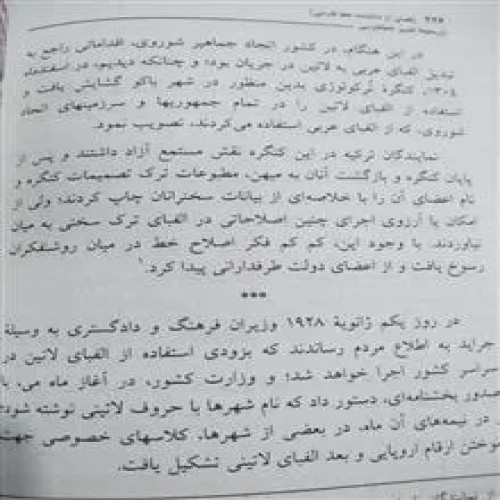 در این هنگام، در کشور اتحاد جماهیر شوروی، اقداماتی راجع به
تبدیل الفبای عربی به لاتین در جریان بود؛ و چنانکه دیدیم، در اسفندماه
۱۳۰۴، کنگره تُرکولوژی بدین منظور در شهر باکو گشایش یافت و
استفاده از الفبای لاتین را در تمام جمهوریها و سرزمینهای اتحاد
شوروی، که از الفبای عربی استفاده می‌کردند، تصویب نمود.
نمایندگان ترکیه در این کنگره نقش مستمع آزاد داشتند و پس از
پایان کنگره و بازگشت آنان به میهن، مطبوعات ترک تصمیمات کنگره و
نام اعضای آن را با خلاصه‌ای از بیانات سخنرانان چاپ کردند؛ ولی از
امکان یا آرزوی اجرای چنین اصلاحاتی در الفبای ترک سخنی به میان
نیاوردند. با وجود این، کم کم فکر اصلاح خط در میان روشنفکران
رسوخ یافت و از اعضای دولت طرفدارانی پیدا کرد.۱
***
در روز یکم ژانویهٔ ۱۹۲۸ وزیران فرهنگ و دادگستری به وسیلهٔ
جراید به اطلاع مردم رساندند که بزودی استفاده از الفبای لاتین در
سراسر کشور اجرا خواهد شد؛ و وزارت کشور، در آغاز ماه می، با
صدور بخشنامه‌ای، دستور داد که نام شهرها با حروف لاتینی نوشته شود؛
در نیمه‌های آن ماه، در بعضی از شهرها، کلاسهای خصوصی جهت
موختن ارقام اروپایی و بعد الفبای لاتینی تشکیل یافت.